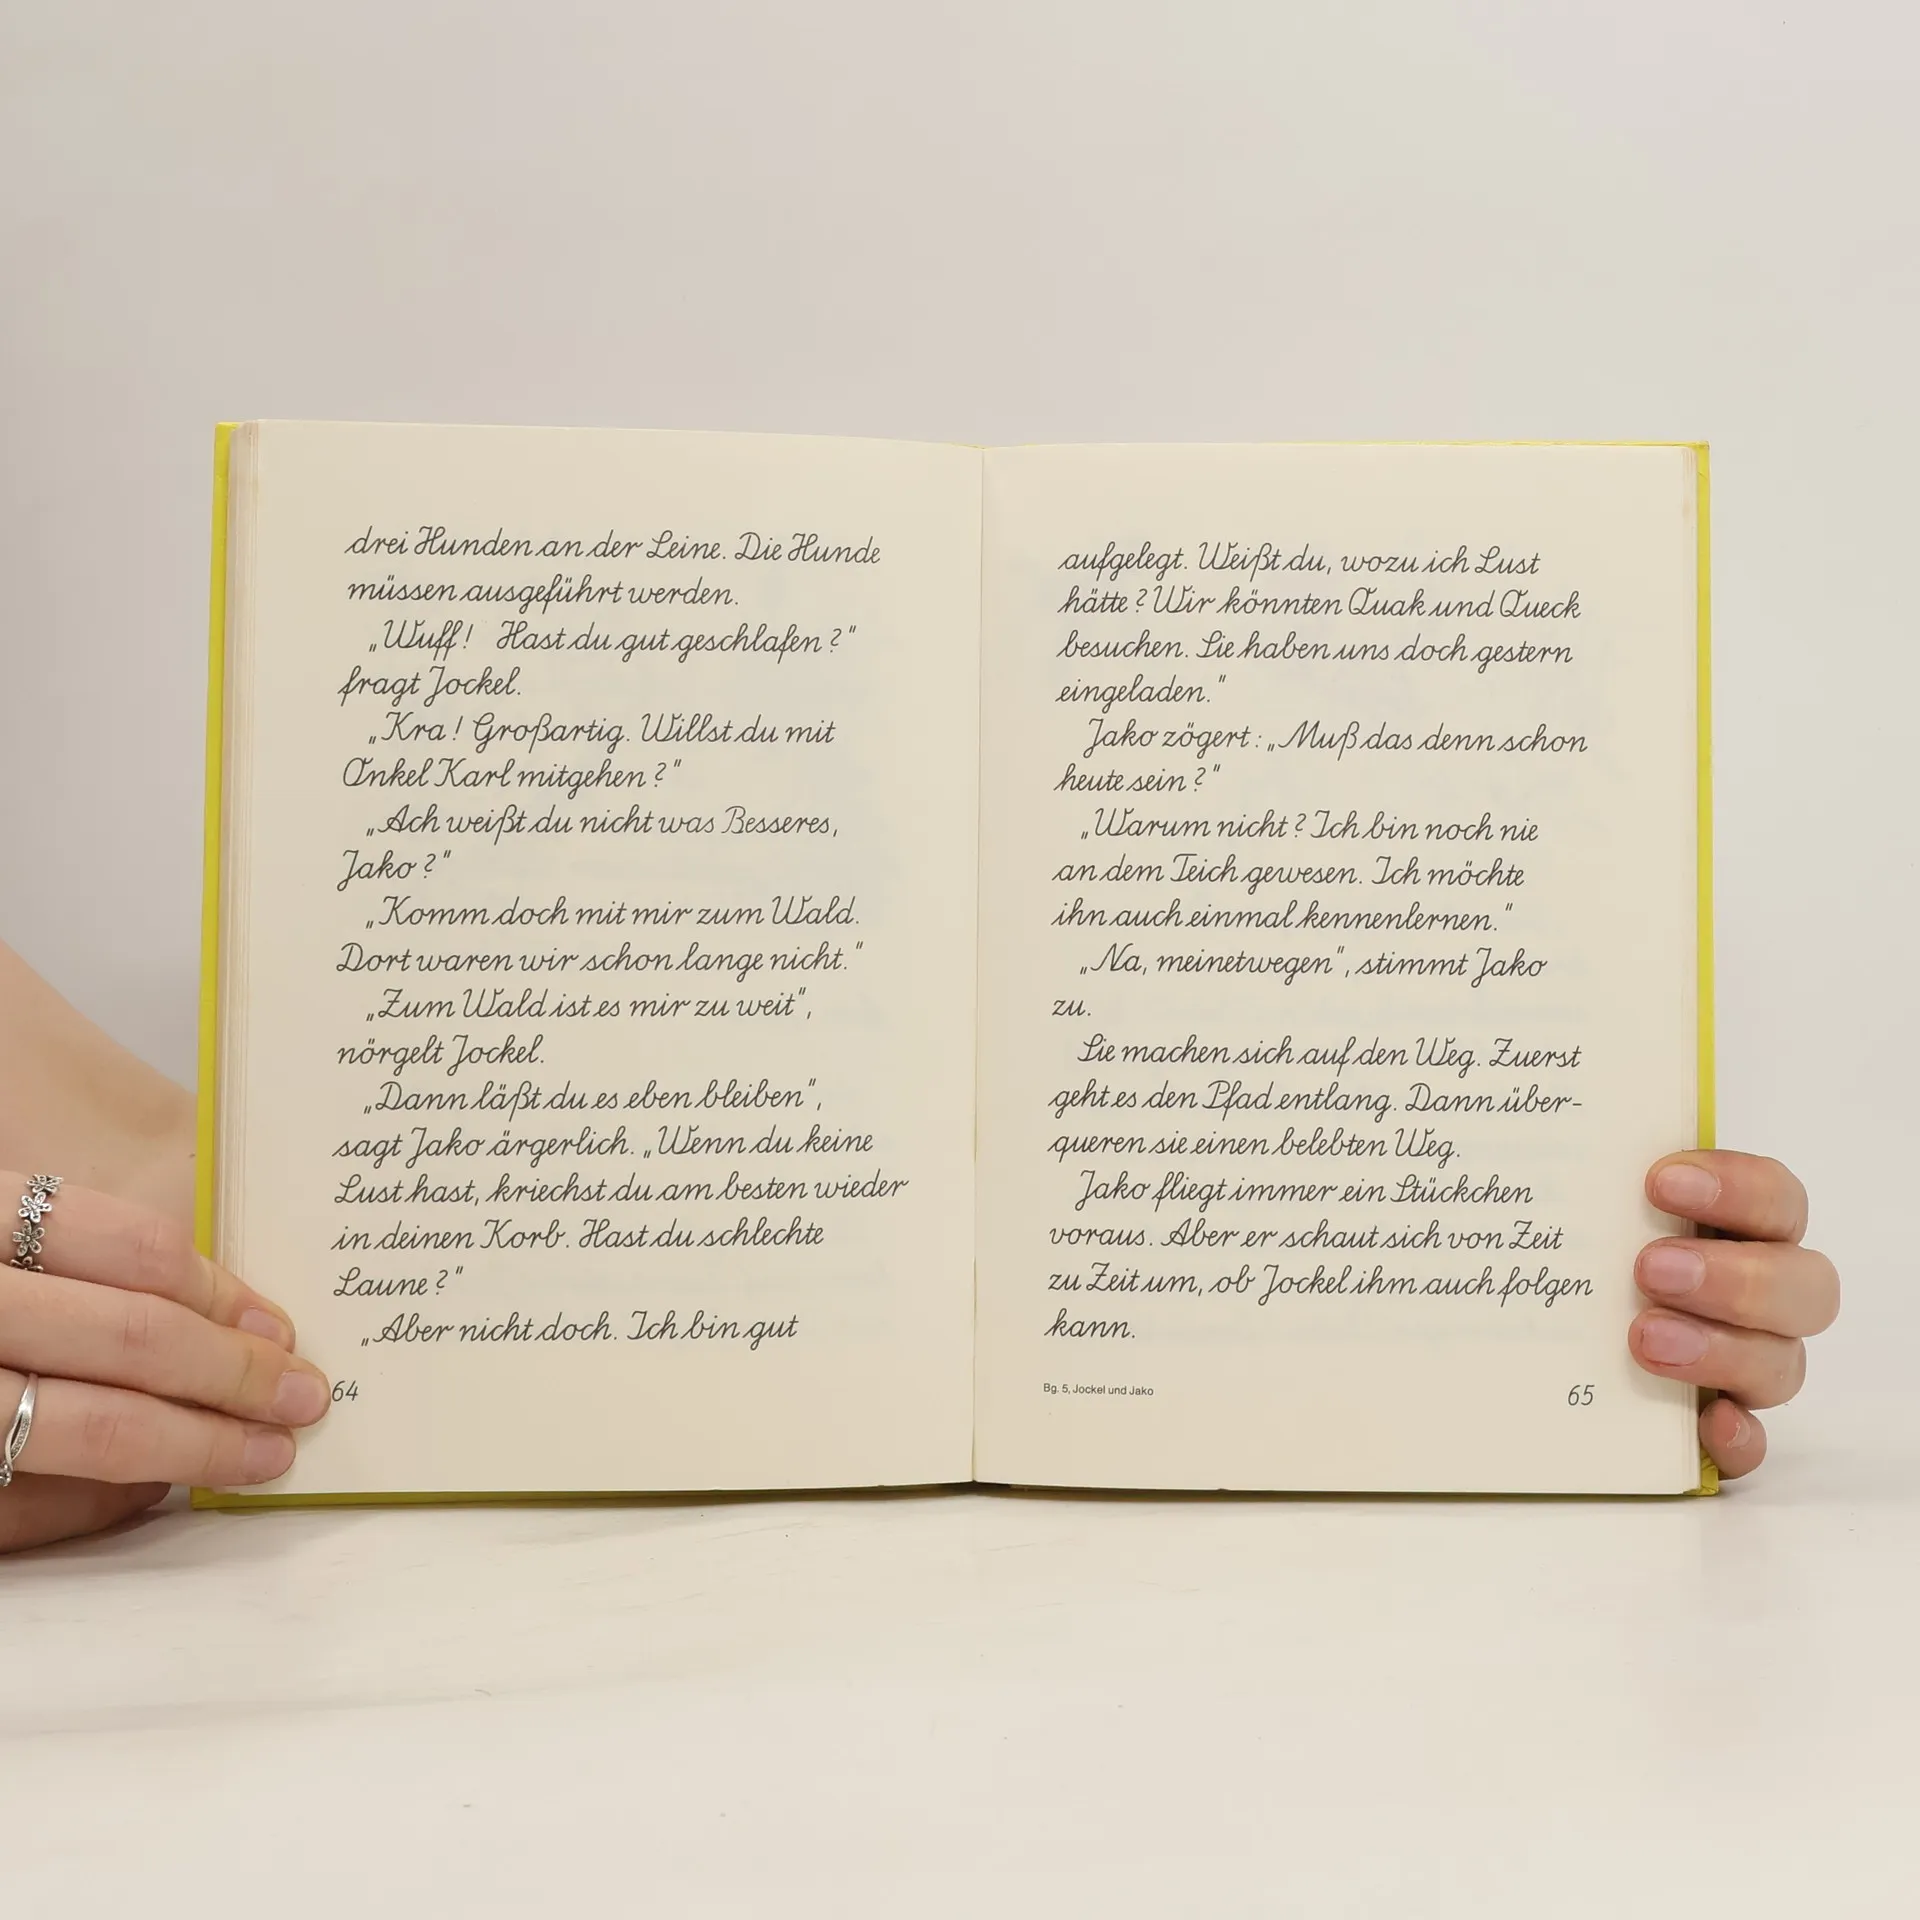 drei Hunden an der Leine. Die Hunde
müssen ausgeführt werden.
„Wuff! Hast du gut geschlafen?"
fragt Jockel.
„Kra! Großartig. Willst du mit
Onkel Karl mitgehen?"
„Ach weißt du nicht was Besseres,
Jako?"
„Komm doch mit mir zum Wald.
Dort waren wir schon lange nicht."
„Zum Wald ist es mir zu weit",
nörgelt Jockel.
„Dann läßt du es eben bleiben",
sagt Jako ärgerlich. „Wenn du keine
Lust hast, kriechst du am besten wieder
in deinen Korb. Hast du schlechte
Laune?"
„Aber nicht doch. Ich bin gut
64
aufgelegt. Weißt du, wozu ich Lust
hätte? Wir könnten Quak und Queck
besuchen. Sie haben uns doch gestern
eingeladen."
Jako zögert: „Muß das denn schon
heute sein?"
„Warum nicht? Ich bin noch nie
an dem Teich gewesen. Ich möchte
ihn auch einmal kennenlernen."
„Na, meinetwegen", stimmt Jako
zu.
Sie machen sich auf den Weg. Zuerst
geht es den Pfad entlang. Dann über-
queren sie einen belebten Weg.
Jako fliegt immer ein Stückchen
voraus. Aber er schaut sich von Zeit
zu Zeit um, ob Jockel ihm auch folgen
kann.
Bg. 5, Jockel und Jako
65